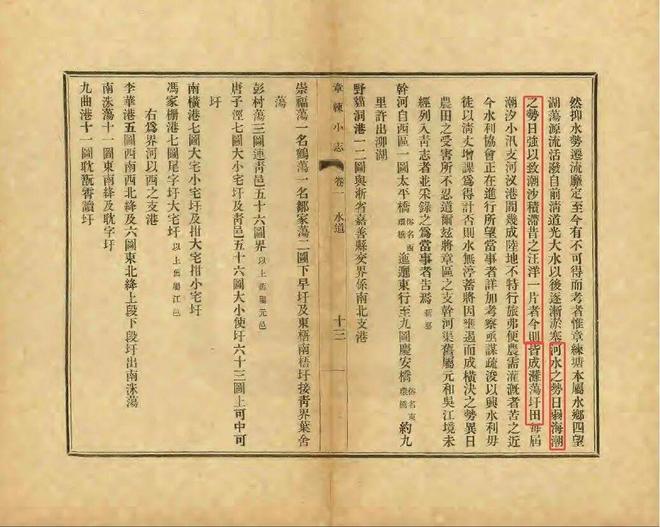 然抑水勢遷流靡定至今有不可得而考者惟章練塘本屬水鄉四望
湖蕩源流活潑自前淸道光大水以後逐漸淤塞河水之勢日弱海潮
之勢日強以致潮沙積滯昔之汪洋一片者今則皆成灘蕩圩田每屆
潮汐小汛支河汊港閒幾成陸地不特行旅弗便農需灌漑者苦之近
今水利協會正在進行所望當事者詳加考察亟謀疏浚以興水利毋
徒以淸丈增課爲得計否則水無渟蓄將因壅遏而成橫決之勢異日
農田之受害所不忍道爾玆將章區之支幹河渠舊屬元和吳江境未
經列入靑志者並采錄之爲當事者告焉
幹河自西區一圖太平橋俗名西環橋迤邐東行至九圖慶安橋俗名東環橋約九
里許出泖湖
野貓洞港一二圖與浙省嘉善縣交界係南北支港
章練小志 卷一 水道 十三
崇福蕩一名鶴蕩一名鄒家蕩二圖下早圩及東梧南梧圩接靑界葉舍
蕩
彭村蕩三圖連靑邑五十六圖界以上舊屬元邑
唐子涇七圖大小宅圩及靑邑五十六圖大小使圩六十三圖上可中可
圩
南橫港七圖大宅小宅圩及拑大宅拑小宅圩
馮家柵港七圖尾字圩大宅圩以上舊屬江邑
右爲界河以西之支港
李華港五圖西南西北絳及六圖東北絳上段下段圩出南洙蕩
南洙蕩十一圖東南絳及耽字圩
九曲港十一圖耽翫讀圩